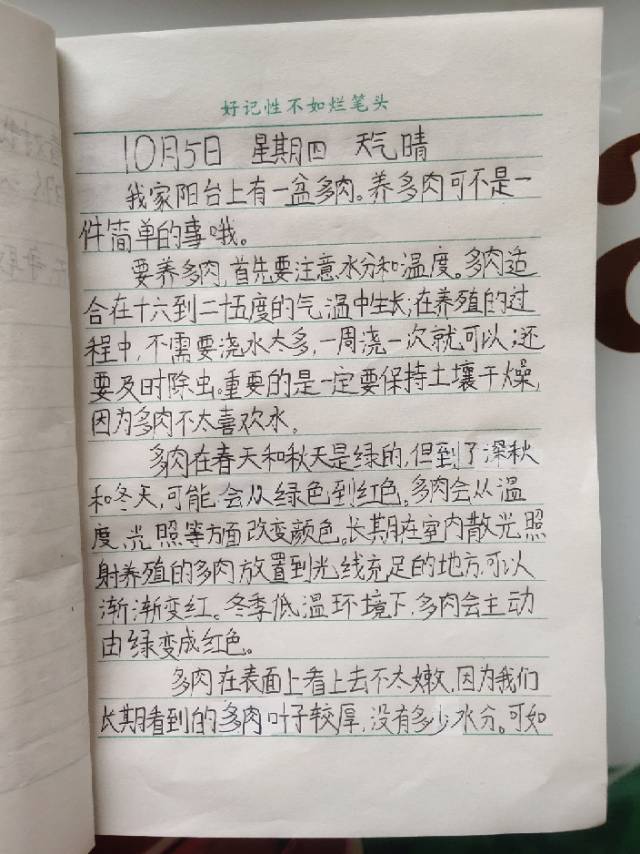 好记性不如烂笔头
10月5日 星期四 天气晴
我家阳台上有一盆多肉。养多肉可不是一
件简单的事哦。
要养多肉,首先要注意水分和温度。多肉适
合在十六到二十五度的气温中生长;在养殖的过
程中,不需要浇水太多,一周浇一次就可以;还
要及时除虫。重要的是一定要保持土壤干燥,
因为多肉不太喜欢水。
多肉在春天和秋天是绿的,但到了深秋
和冬天,可能会从绿色到红色。多肉会从温
度、光照等方面改变颜色。长期在室内散光照
射养殖的多肉放置到光线充足的地方,可以
渐渐变红。冬季低温环境下,多肉会主动
由绿变成红色。
多肉在表面上看上去不太嫩,因为我们
长期看到的多肉叶子较厚,没有多少水分。可如